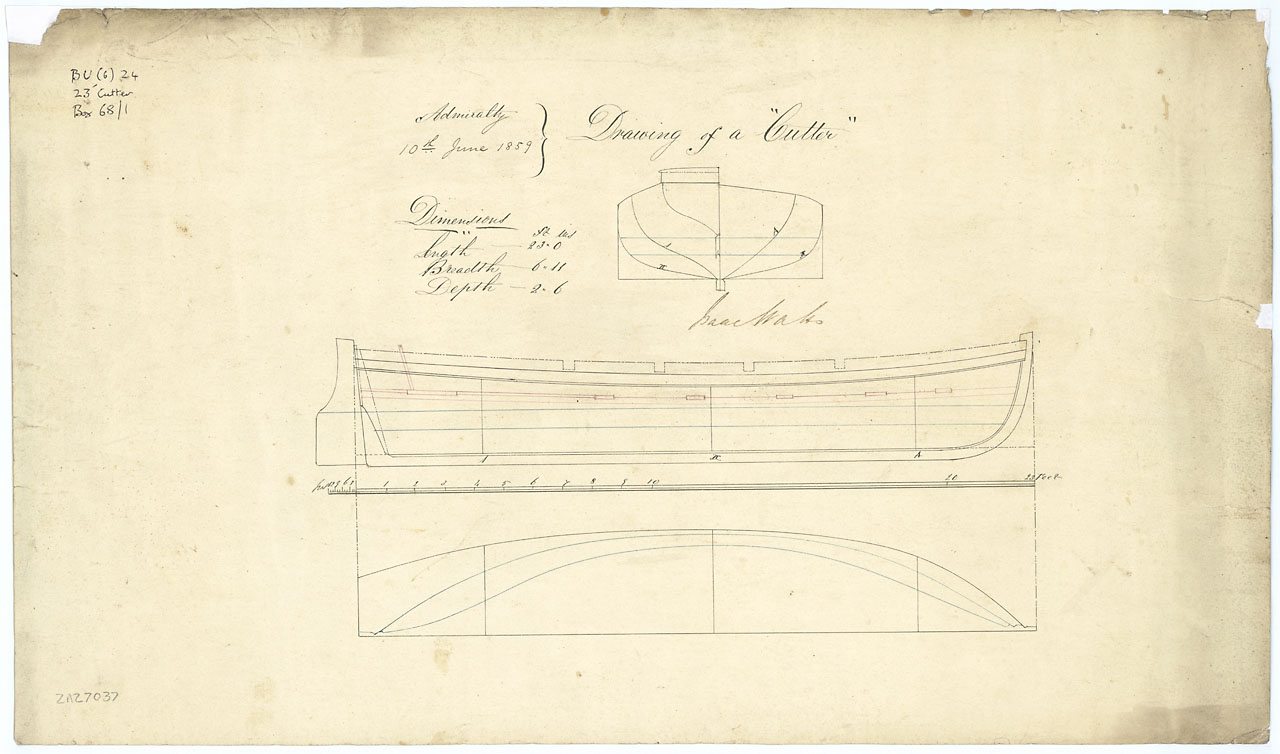 BU (6) 24
23' Cutter
Box 68/1
Admiralty
10th June 1859
Drawing of a "Cutter"
Dimensions
ft ins
Length 23-0
Breadth 6-11
Depth 2-6
Isaac Watts
1 2 3 4 5 6 7 8 9 10 20 23 Feet
ZAZ7037